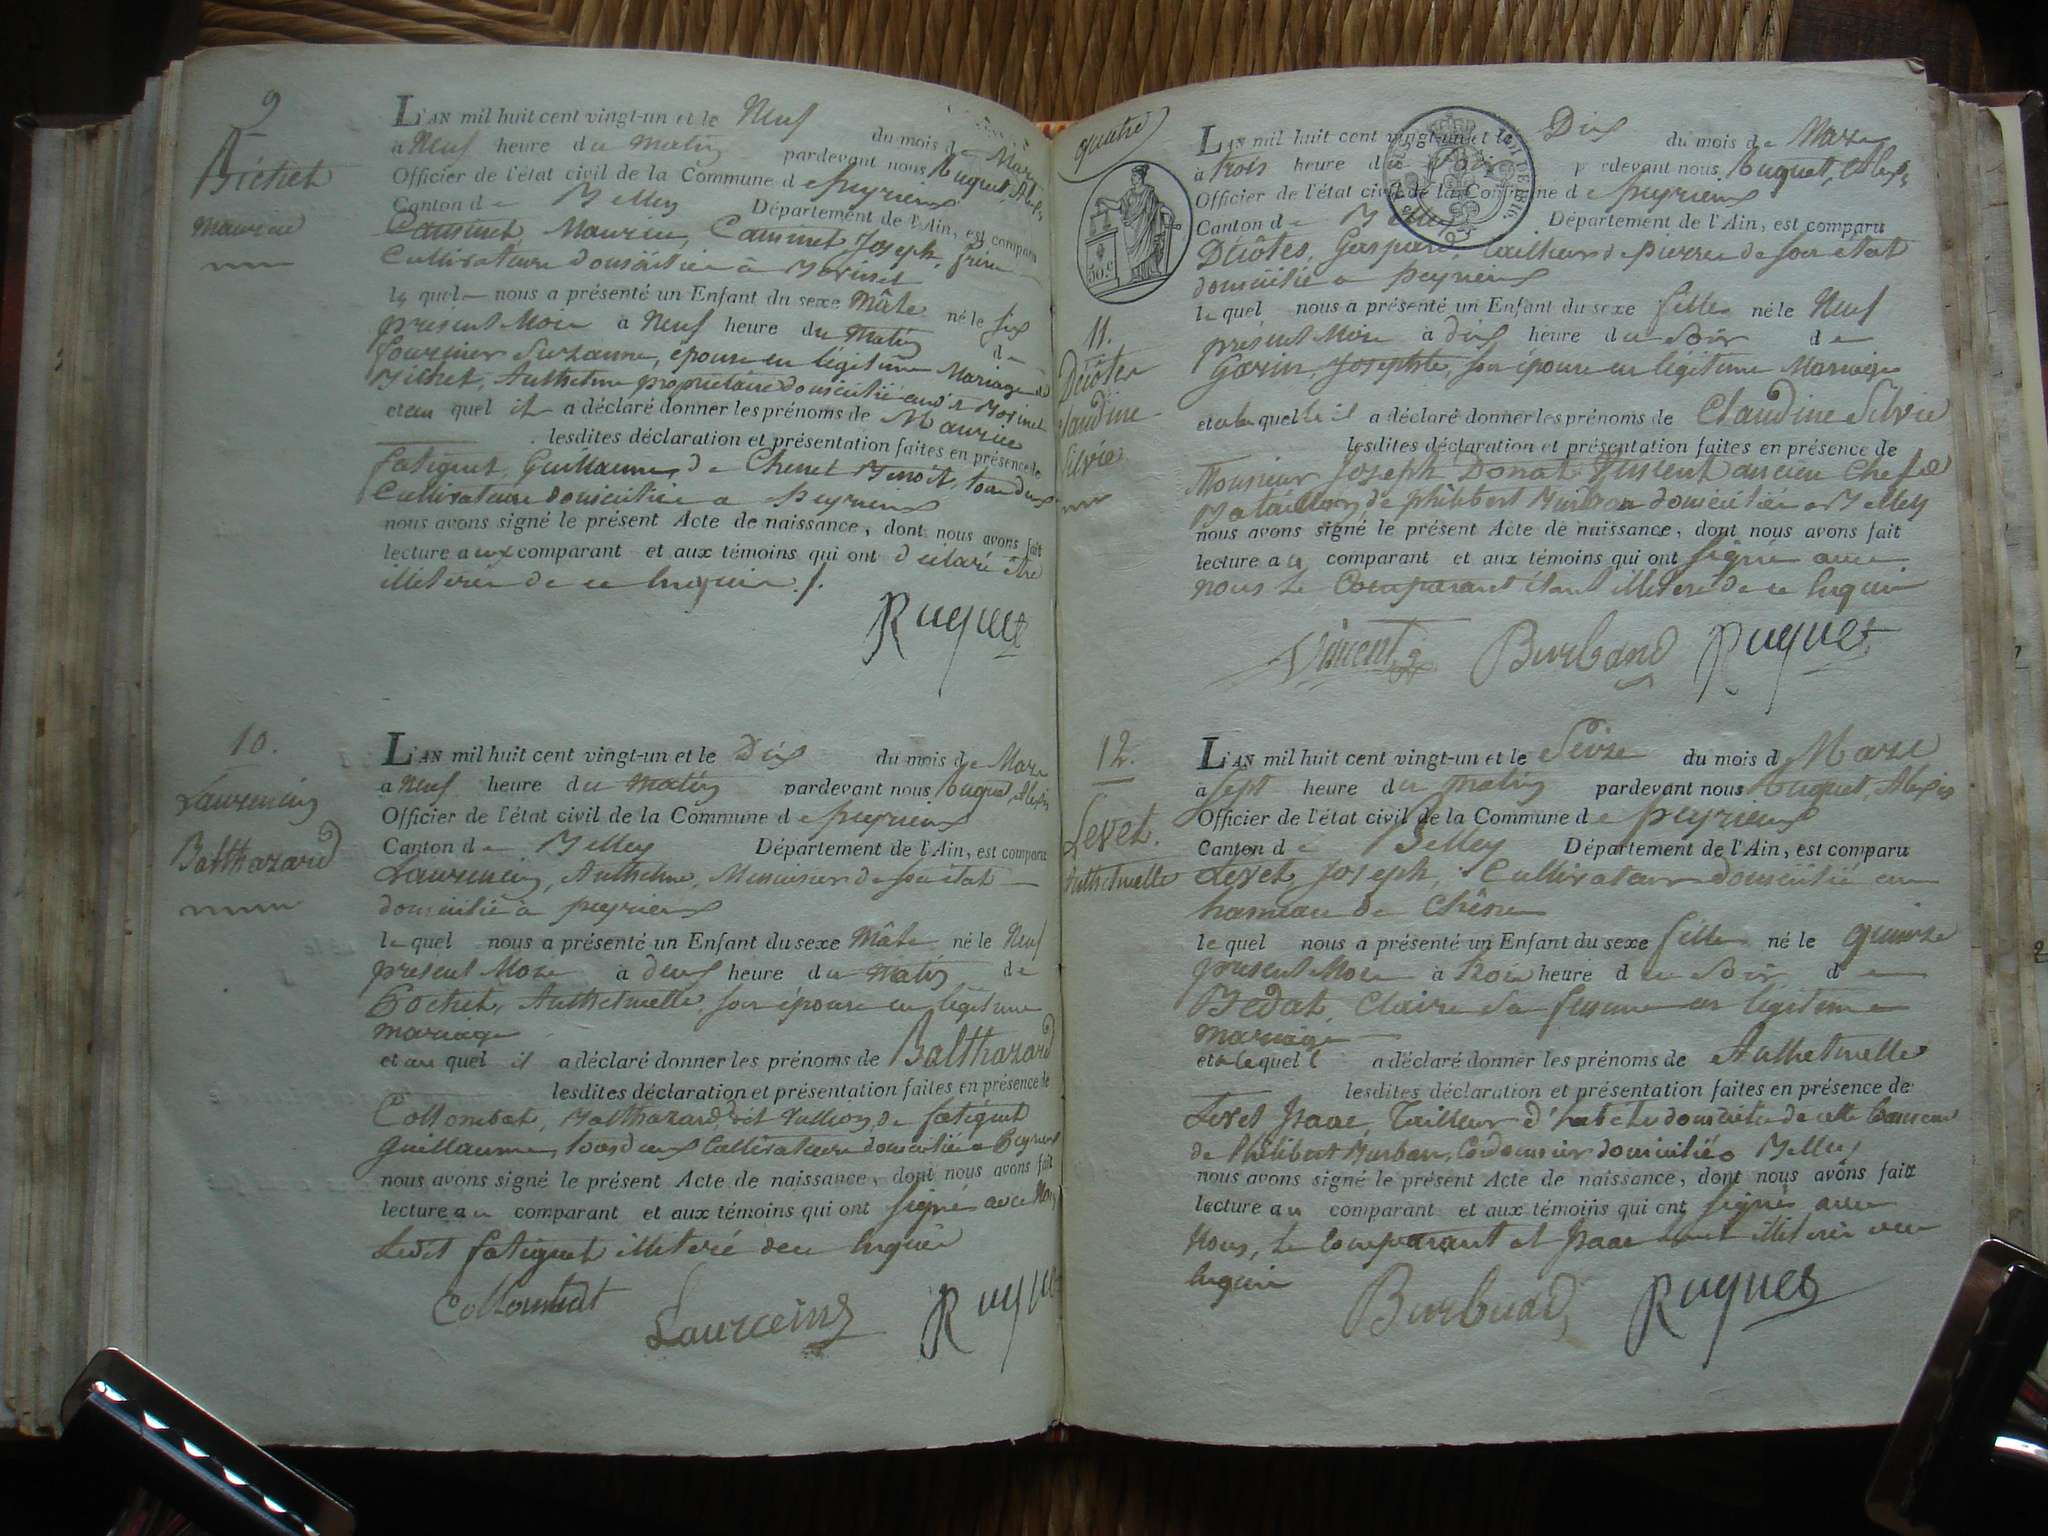 9
Bichet
Maurice
L'AN mil huit cent vingt-un et le Neuf du mois de Mars
à Neuf heure du Matin pardevant nous Ruquet, Alexis
Officier de l'état civil de la Commune de peyrieux
Canton de Belley Département de l'Ain, est comparu
Maurice, Joseph,
Cultivateurs domicilié à
le quel nous a présenté un Enfant du sexe Mâle né le six
présent Mois à Neuf heure du Matin de
fournier Suzanne, épouse en légitime Mariage de
Bichet, Anthelme propriétaire domicilié
et au quel il a déclaré donner les prénoms de Maurice
lesdites déclaration et présentation faites en présence de
fatiguet Guillaume, de Chenet Benoît, tous deux
Cultivateurs domicilié a peyrieux
nous avons signé le présent Acte de naissance, dont nous avons fait
lecture aux comparant et aux témoins qui ont déclaré être
illiteré de ce Enquis ./.
Ruquet
10.
Laurencin
Balthazard
L'AN mil huit cent vingt-un et le Dix du mois de Mars
a Neuf heure du Matin pardevant nous Ruquet, Alexis
Officier de l'état civil de la Commune de peyrieux
Canton de Belley Département de l'Ain, est comparu
Laurencin, Anthelme, Menuisier de son état
domicilié à peyrieux
le quel nous a présenté un Enfant du sexe Mâle né le Neuf
présent Mois à deux heure du Matin de
Anthelmette son épouse en légitime
mariage
et au quel il a déclaré donner les prénoms de Balthazard
lesdites déclaration et présentation faites en présence de
Collombat, Balthazard, dit de fatiguet
Guillaume, tous deux Cultivateurs domicilié a Peyrieux
nous avons signé le présent Acte de naissance, dont nous avons fait
lecture au comparant et aux témoins qui ont signé avec Nous
Ledit fatiguet illiteré de ce Enquis
Collombat Laurencin Ruquet
quatre
50.c
11.
Décôtes
Claudine
Silvie
L'AN mil huit cent vingt-un et le Dix du mois de Mars
à trois heure du Soir pardevant nous Ruquet, Alexis
Officier de l'état civil de la Commune de peyrieux
Canton de Belley Département de l'Ain, est comparu
Décôtes, Gaspard, tailleur de pierre de son état
domicilié a peyrieux
le quel nous a présenté un Enfant du sexe fille né le Neuf
présent Mois à dix heure du Soir de
Gorin, Josephte, son épouse en légitime Mariage
et a la quelle il a déclaré donner les prénoms de Claudine Silvie
lesdites déclaration et présentation faites en présence de
Monsieur Joseph Donat Vincent ancien Chef de
Bataillon, de philibert Burban domicilié a Belley
nous avons signé le présent Acte de naissance, dont nous avons fait
lecture au comparant et aux témoins qui ont signé avec
nous Le Comparant étant illiteré de ce Enquis
Vincent Burband Ruquet
12.
Levet.
Anthelmette
L'AN mil huit cent vingt-un et le Seize du mois de Mars
à Sept heure du Matin pardevant nous Ruquet, Alexis
Officier de l'état civil de la Commune de peyrieux
Canton de Belley Département de l'Ain, est comparu
Levet Joseph, Cultivateur domicilié au
hameau de Chêne
le quel nous a présenté un Enfant du sexe fille né le quinze
présent Mois à trois heure du Soir de
Bedat, Claire Sa femme en légitime
mariage
et a la quelle il a déclaré donner les prénoms de Anthelmette
lesdites déclaration et présentation faites en présence de
Levet Isaac, Tailleur d'habits domicilié de cette Commune
de Philibert Burban, Cordonnier domicilié a Belley
nous avons signé le présent Acte de naissance, dont nous avons fait
lecture au comparant et aux témoins qui ont signé avec
Nous, Le Comparant et Isaac sont illiteré
Enquis
Burband Ruquet